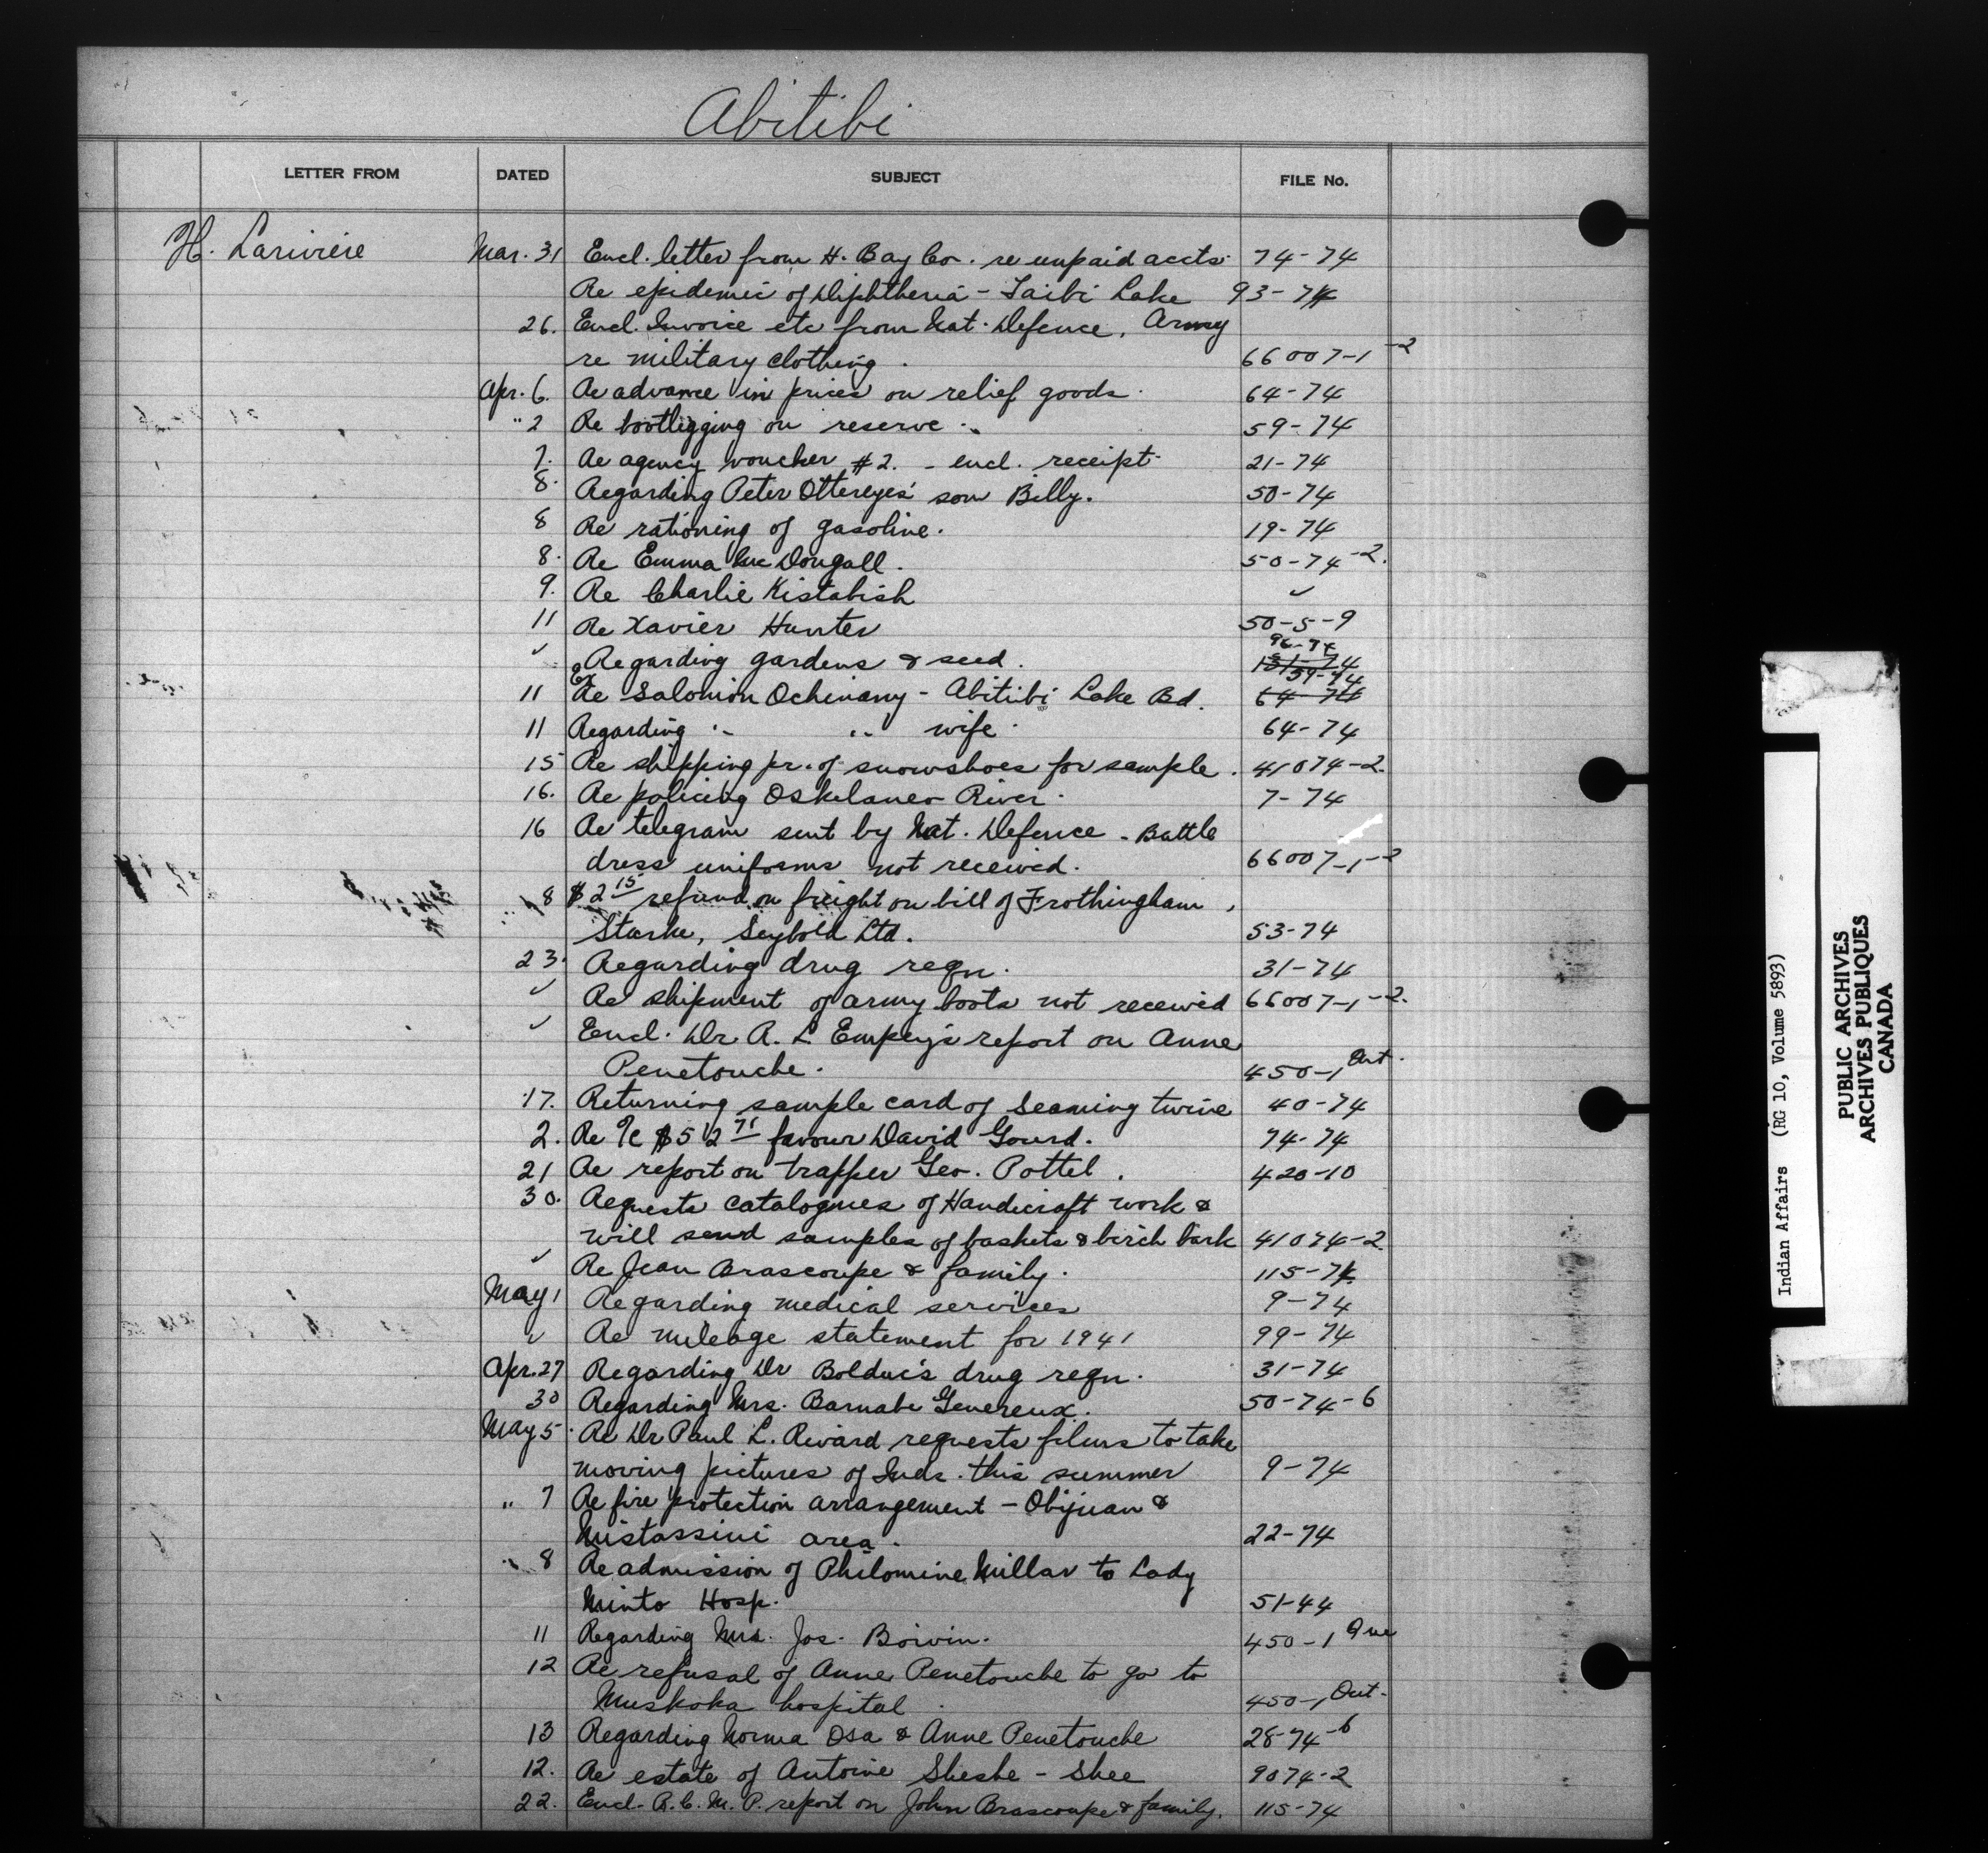 Abitibi
LETTER FROM DATED SUBJECT FILE No.
H. Lariviere Mar. 31 Encl. letter from H. Bay Co. re unpaid accts. 74-74
Re epidemic of Diphtheria - Taibi Lake 93-74
26. Encl. Invoice etc from Nat. Defence, Army
re military clothing. 66007-1-2
Apr. 6. Re advance in prices on relief goods. 64-74
" 2 Re bootlegging on reserve. 59-74
7. Re agency voucher #2. - encl. receipt. 21-74
8. Regarding Peter Ottereyes' son Billy. 50-74
8 Re rationing of gasoline. 19-74
8. Re Emma McDougall. 50-74-2.
9. Re Charlie Kistabish ✓
11 Re Xavier Hunter 50-5-9
✓ Regarding gardens & seed. 96-74
11 Re Salomon Ochimany - Abitibi Lake Bd. 59-74 64-74
11 Regarding " " wife. 64-74
15 Re shipping pr. of snowshoes for sample. 41074-2.
16. Re policing Oskelaneo River. 7-74
16 Re telegram sent by Nat. Defence - Battle
dress uniforms not received. 66007-1-2
8 $2 15 refund on freight on bill of Frothingham,
Starke, Seybold Ltd. 53-74
23. Regarding drug reqn. 31-74
✓ Re shipment of army boots not received 66007-1-2.
✓ Encl. Dr A. L. Empey's report on Anne
Penetouche. 450-1 Ont.
17. Returning sample card of seaming twine 40-74
2. Re a/c $52 71 favour David Gourd. 74-74
21 Re report on trapper Geo. Pottel. 420-10
30. Requests catalogues of Handicraft work &
will send samples of baskets & birch bark 41074-2.
✓ Re Jean Brascoupe & family. 115-74
May 1 Regarding medical services 9-74
✓ Re mileage statement for 1941 99-74
Apr. 27 Regarding Dr Bolduc's drug reqn. 31-74
30 Regarding Mrs. Barnabe Genereux. 50-74-6
May 5. Re Dr Paul L. Rivard requests films to take
moving pictures of Inds. this summer 9-74
" 7 Re fire protection arrangement - Obijuan &
Mistassini area. 22-74
" 8 Re admission of Philomine Millar to Lady
Minto Hosp. 51-44
11 Regarding Mrs. Jos. Boivin. 450-1 Que
12 Re refusal of Anne Penetouche to go to
Muskoka hospital. 450-1 Ont.
13 Regarding Norma Osa & Anne Penetouche 28-74-6
12. Re estate of Antoine Sheshe-Shee 9074-2
22. Encl. R.C.M.P. report on John Brascoupe & family. 115-74
Indian Affairs (RG 10, Volume 5893)
PUBLIC ARCHIVES
ARCHIVES PUBLIQUES
CANADA